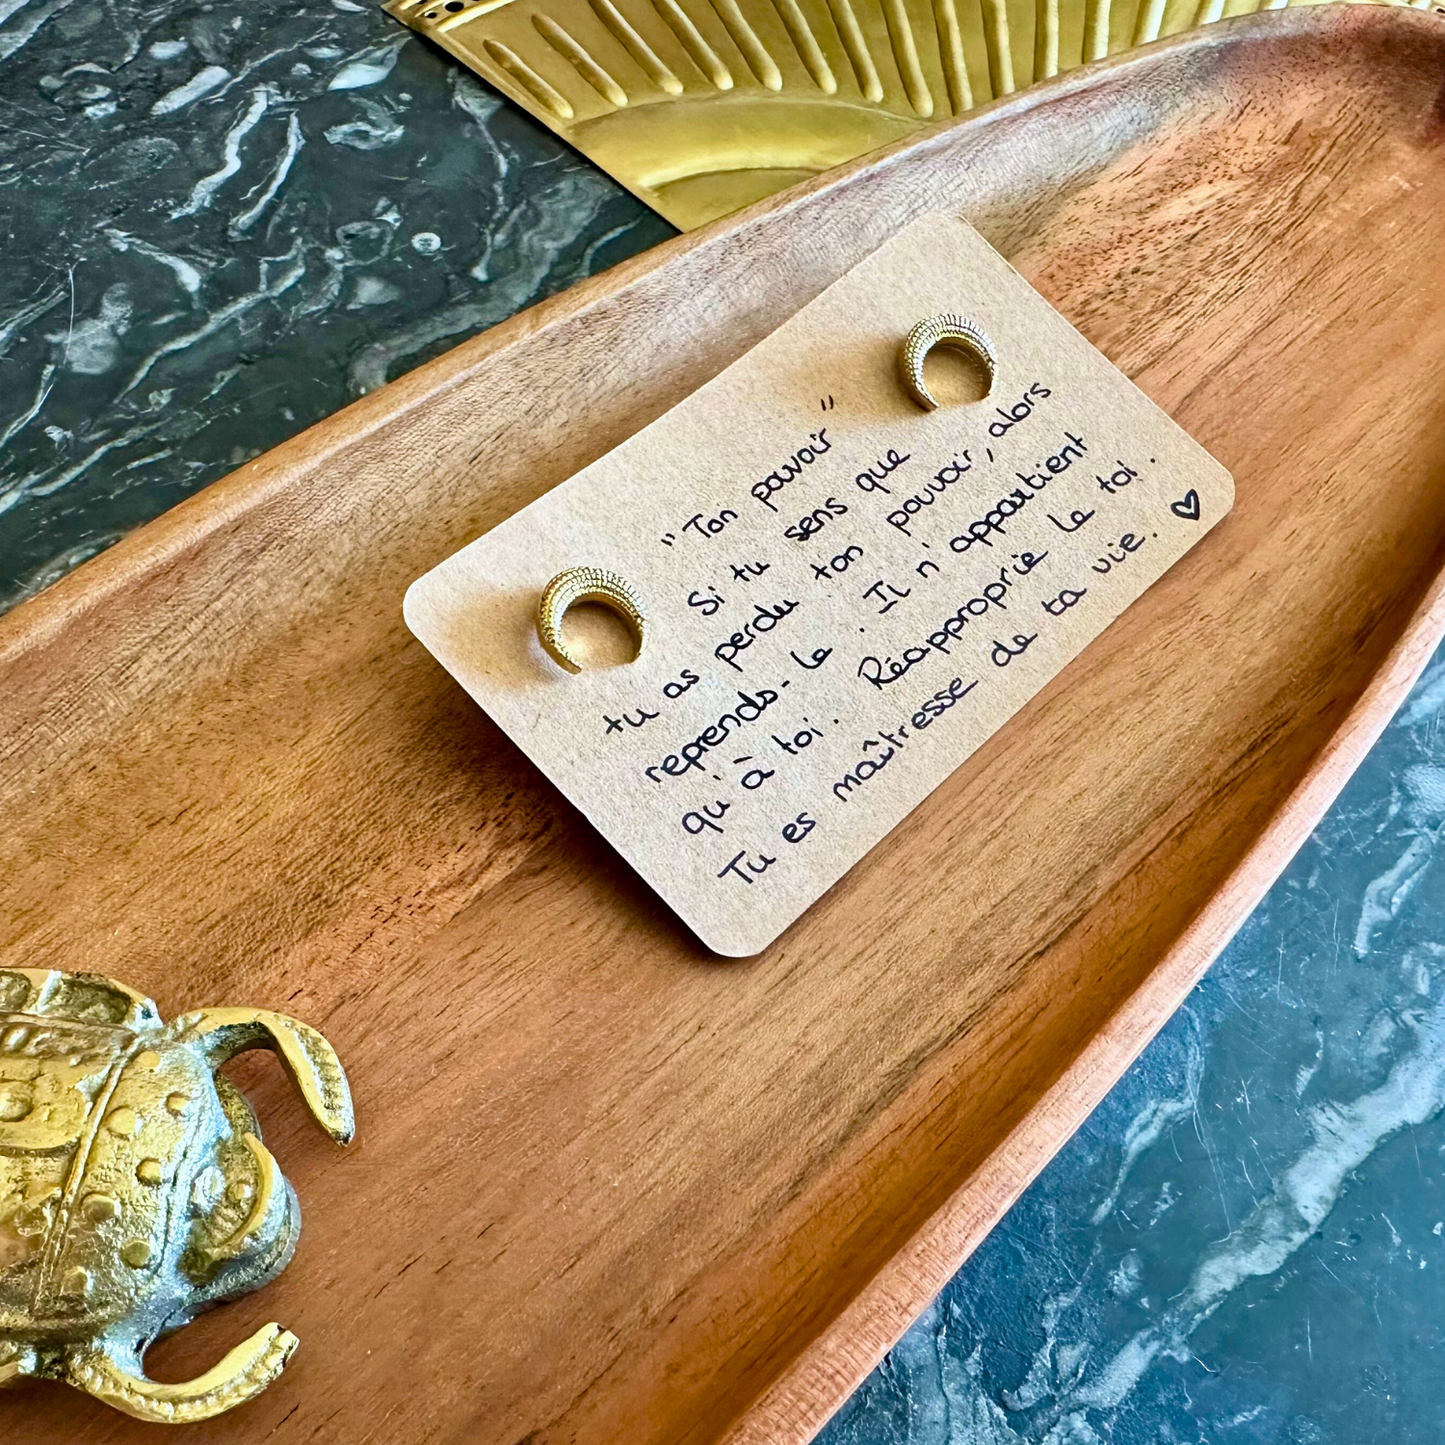 "Ton pouvoir"
Si tu sens que
tu as perdu ton pouvoir, alors
reprends-le. Il n'appartient
qu'à toi. Réapproprie le toi.
Tu es maîtresse de ta vie.